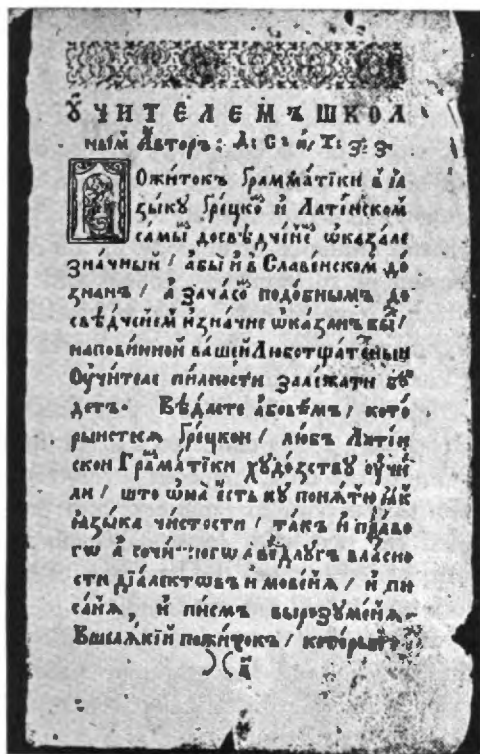 ОУЧИТЕЛЕМЪ ШКОЛ
ным̾ А҆вторъ:
Пожитокъ Грамматїки в꙽ ꙗ
зыку Грецко̑ и҆ Латенском
самы̑ досвѣдченїе̑ ѡказале
значный / абы и҆ в Славенском до
знанъ / а҆ зачасо̑ подобнымъ до
свѣдченїем и҆ значне ѡказанъ бы̑ /
наповинной вашей Любоотщатеныи
Оучителе пилности залежати бꙋ
детъ. Вѣдаете абовѣмъ / кото
рыистеся Грецкои / любъ Латин
скои Граматїки художствꙋ оучи
ли / што ѡна есть кꙋ понятю ꙗк
ꙗзыка чистости / такъ и҆ право
гѡ а҆ сочи нногѡ а ведлугъ власно
сти дїалектѡвъ и҆ мовенїя / и҆ пи
санїя, и҆ писмъ вырозꙋменїя.
Вшелякїй пожитокъ / которыи